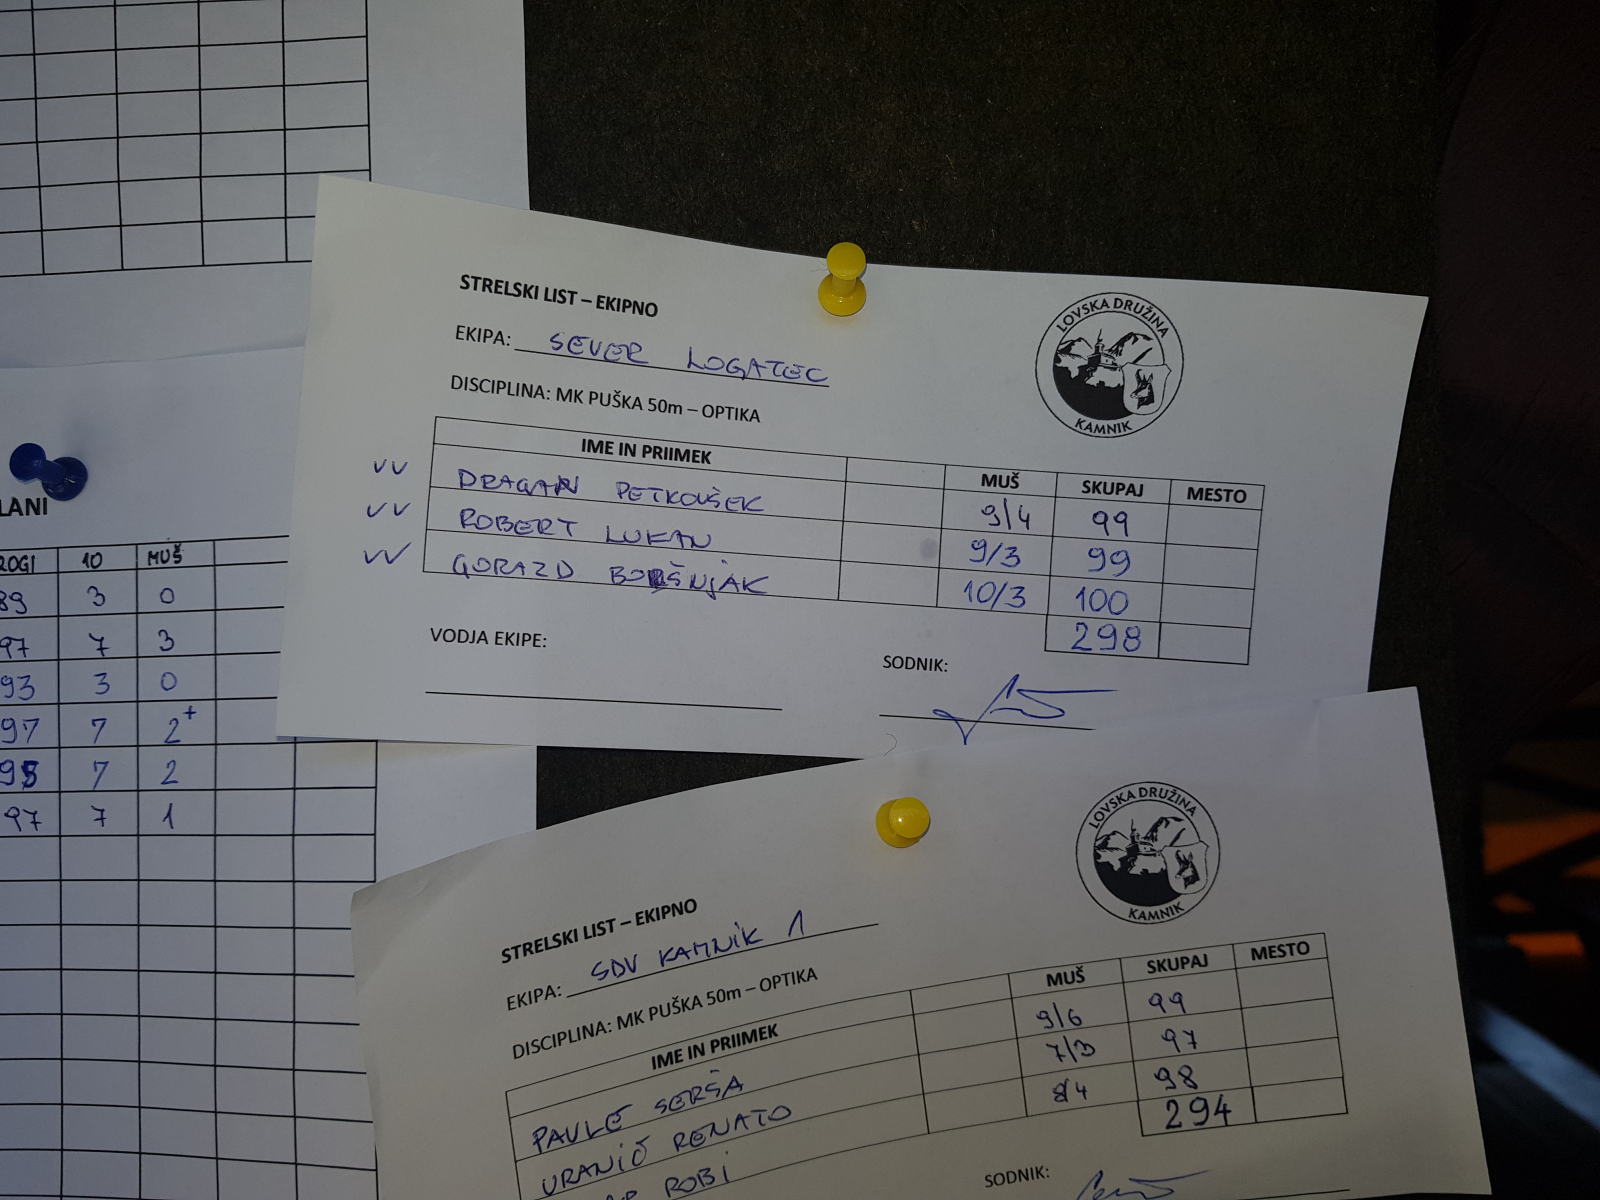 STRELSKI LIST – EKIPNO
EKIPA: SEVER LOGATEC
DISCIPLINA: MK PUŠKA 50m – OPTIKA
LOVSKA DRUŽINA
KAMNIK
IME IN PRIIMEK MUŠ SKUPAJ MESTO
DRAGAN PETKOVŠEK 9/4 99
ROBERT LUKAN 9/3 99
GORAZD BOŠNJAK 10/3 100
298
VODJA EKIPE:
SODNIK:
LANI
ROGI 10 MUŠ
89 3 0
97 7 3
93 3 0
97 7 2+
95 7 2
97 7 1
STRELSKI LIST – EKIPNO
EKIPA: SDV KAMNIK 1
DISCIPLINA: MK PUŠKA 50m – OPTIKA
LOVSKA DRUŽINA
KAMNIK
IME IN PRIIMEK MUŠ SKUPAJ MESTO
PAVLE SERŠA 9/6 99
URANIČ RENATO 7/3 97
ROBI 8/4 98
294
SODNIK: